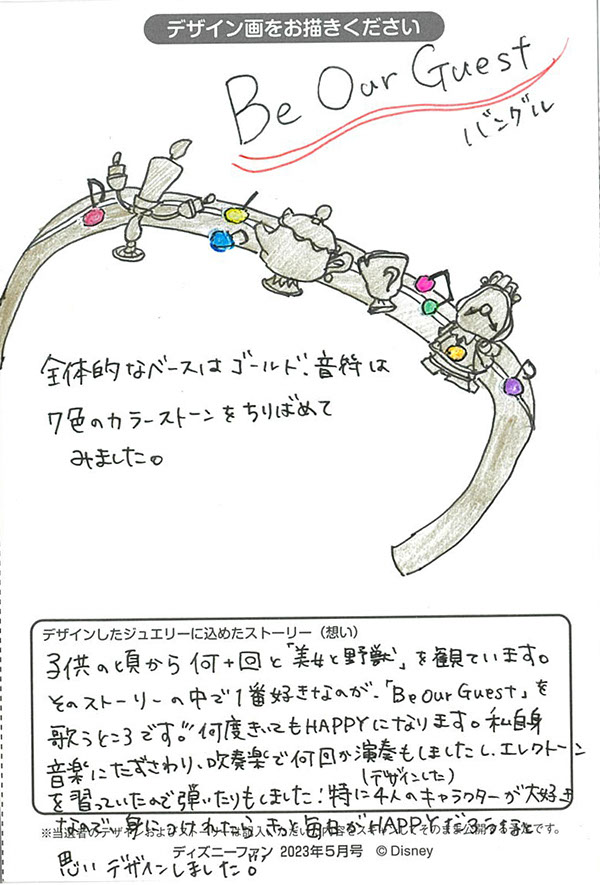 デザイン画をお描きください
Be Our Guest
バングル
全体的なベースはゴールド、音符は
7色のカラーストーンをちりばめて
みました。
デザインしたジュエリーに込めたストーリー（想い）
子供の頃から何十回と「美女と野獣」を観ています。
そのストーリーの中で1番好きなのが、「Be Our Guest」を
歌うところです!!何度きいてもHAPPYになります。私自身
音楽にたずさわり、吹奏楽で何回か演奏もしましたし、エレクトーン
を習っていたので弾いたりもしました!特に(デザインした)4人のキャラクターが大好き
なので、身につけれたらきっと毎日がHAPPYだろうなと
※当選者のデザインおよびストーリーは
そのまま公開する
です。
思いデザインしました。
ディズニーファン 2023年5月号 © Disney